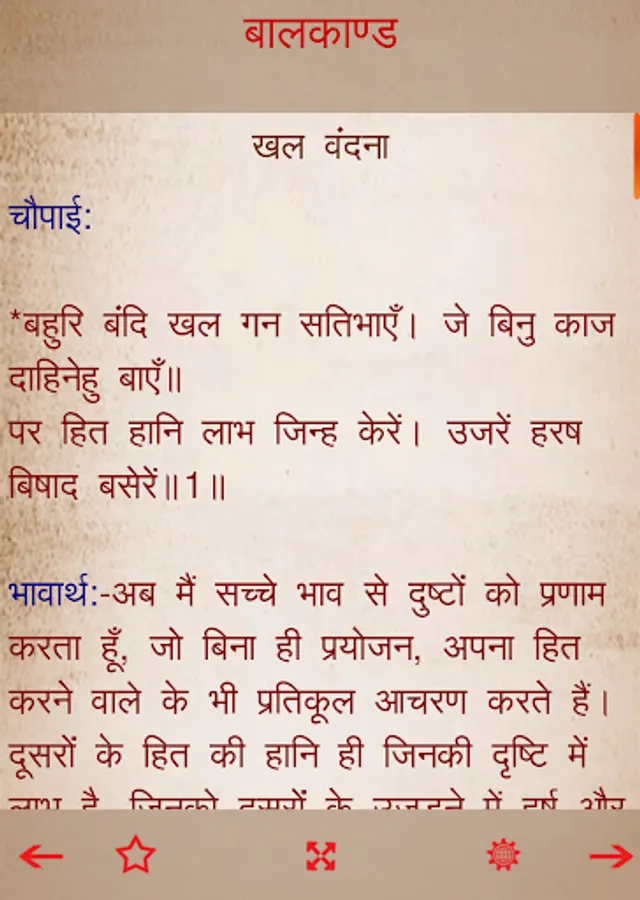 बालकाण्ड
खल वंदना
चौपाई:
*बहुरि बंदि खल गन सतिभाएँ। जे बिनु काज
दाहिनेहु बाएँ॥
पर हित हानि लाभ जिन्ह केरें। उजरें हरष
बिषाद बसेरें॥1॥
भावार्थ:-अब मैं सच्चे भाव से दुष्टों को प्रणाम
करता हूँ, जो बिना ही प्रयोजन, अपना हित
करने वाले के भी प्रतिकूल आचरण करते हैं।
दूसरों के हित की हानि ही जिनकी दृष्टि में
लाभ है, जिनको दूसरों के उजड़ने में हर्ष और